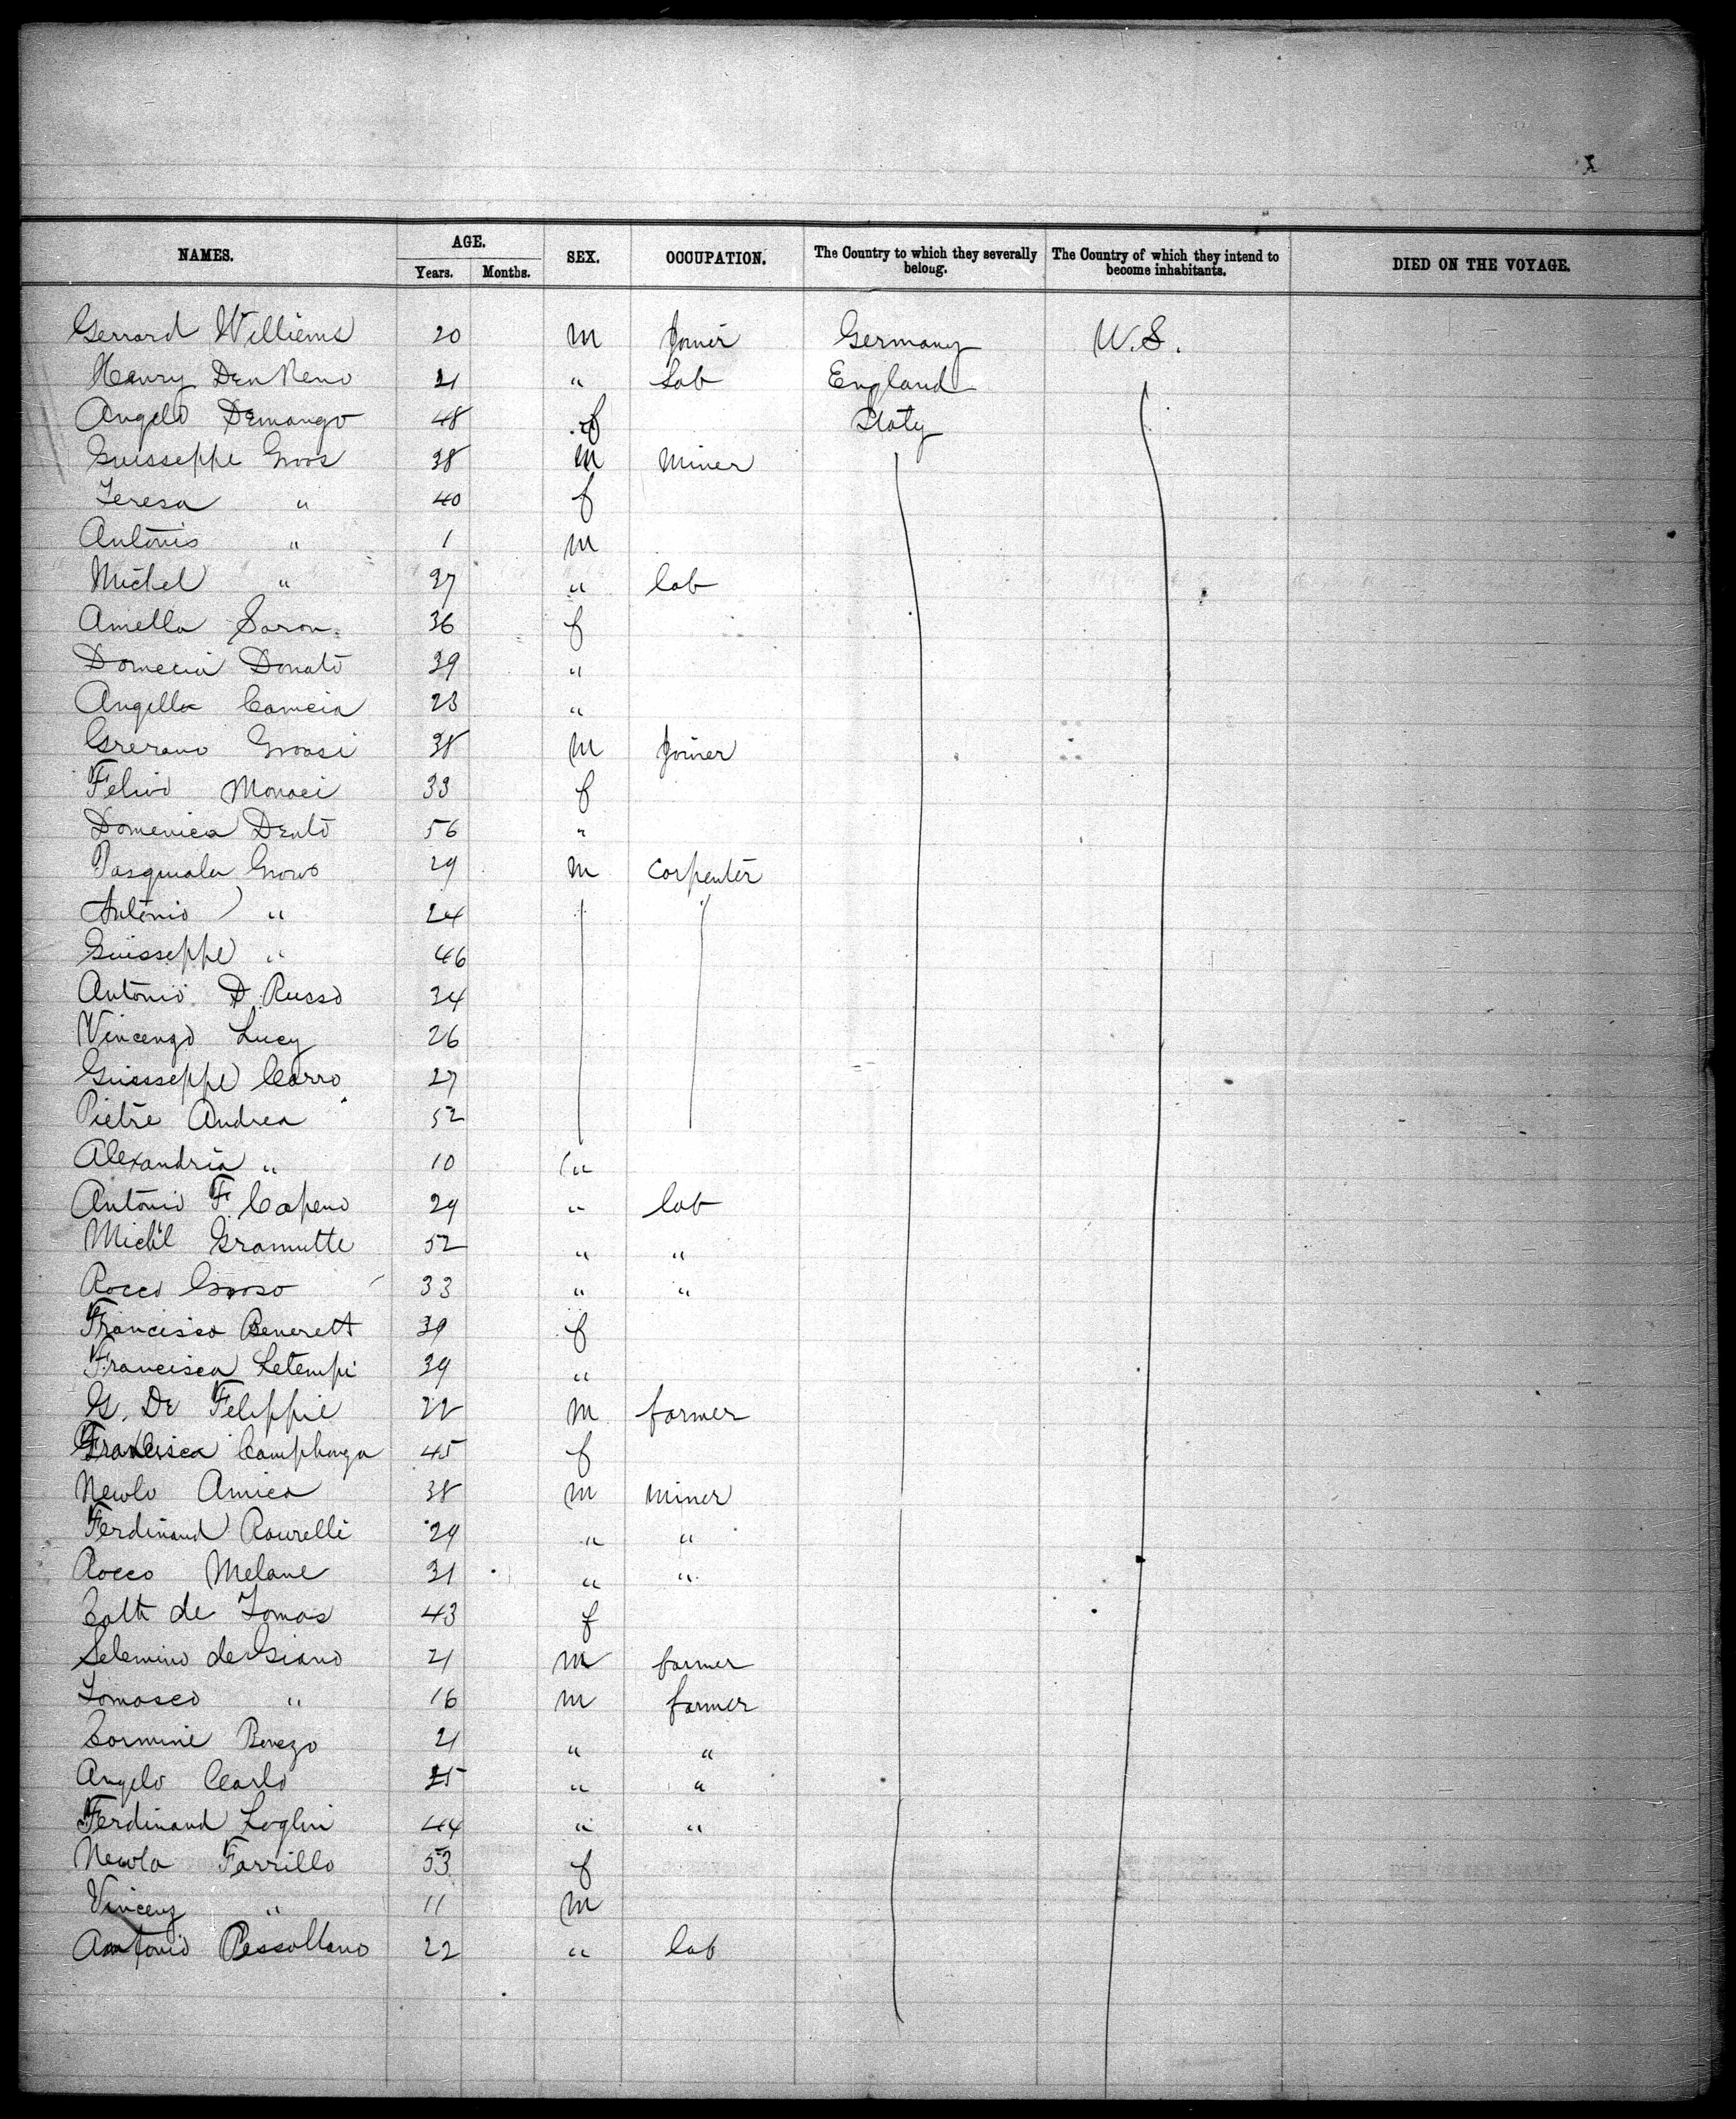 NAMES. AGE. SEX. OCCUPATION. The Country to which they severally belong. The Country of which they intend to become inhabitants. DIED ON THE VOYAGE.
Years. Months.
Gerrard Williems 20 m Joiner Germany U.S.
Henry DenReno 21 " Lab England
Angelo Demango 48 f Italy
Guisseppe Groos 38 m Miner
Teresa " 40 f
Antonio " 1 m
Michel " 37 " lab
Amella Saron 36 f
Domecia Donato 39 "
Angella Camcia 23 "
Grerano Groosi 38 m Joiner
Felivo Monaci 33 f
Domenica Dento 56 "
Pasquala Growo 29 m Carpenter
Antonio " 24
Guisseppe " 46
Antonio D. Russo 34
Vincenzo Lucy 26
Guisseppe Carro 27
Pietre Andrea 52
Alexandria " 10 "
Antonio F. Capeno 29 " lab
Mich'l Gramutte 52 " "
Rocco Grooso 33 " "
Francisca Benerett 39 f
Francisca Letempi 39 "
G. De Felippie 22 m farmer
Francisca Camphonga 45 f
Newlo Amica 38 m miner
Ferdinand Rourelli 29 " "
Rocco Melane 31 " "
Catt de Tomas 43 f
Selemino deGiano 21 m farmer
Tomasco " 16 m farmer
Carmine Benezo 21 " "
Angelo Carlo 25 " "
Ferdinand Loglini 44 " "
Newla Farrillo 53 f
Vincenz " 11 m
Antonio Pessollano 22 " lab